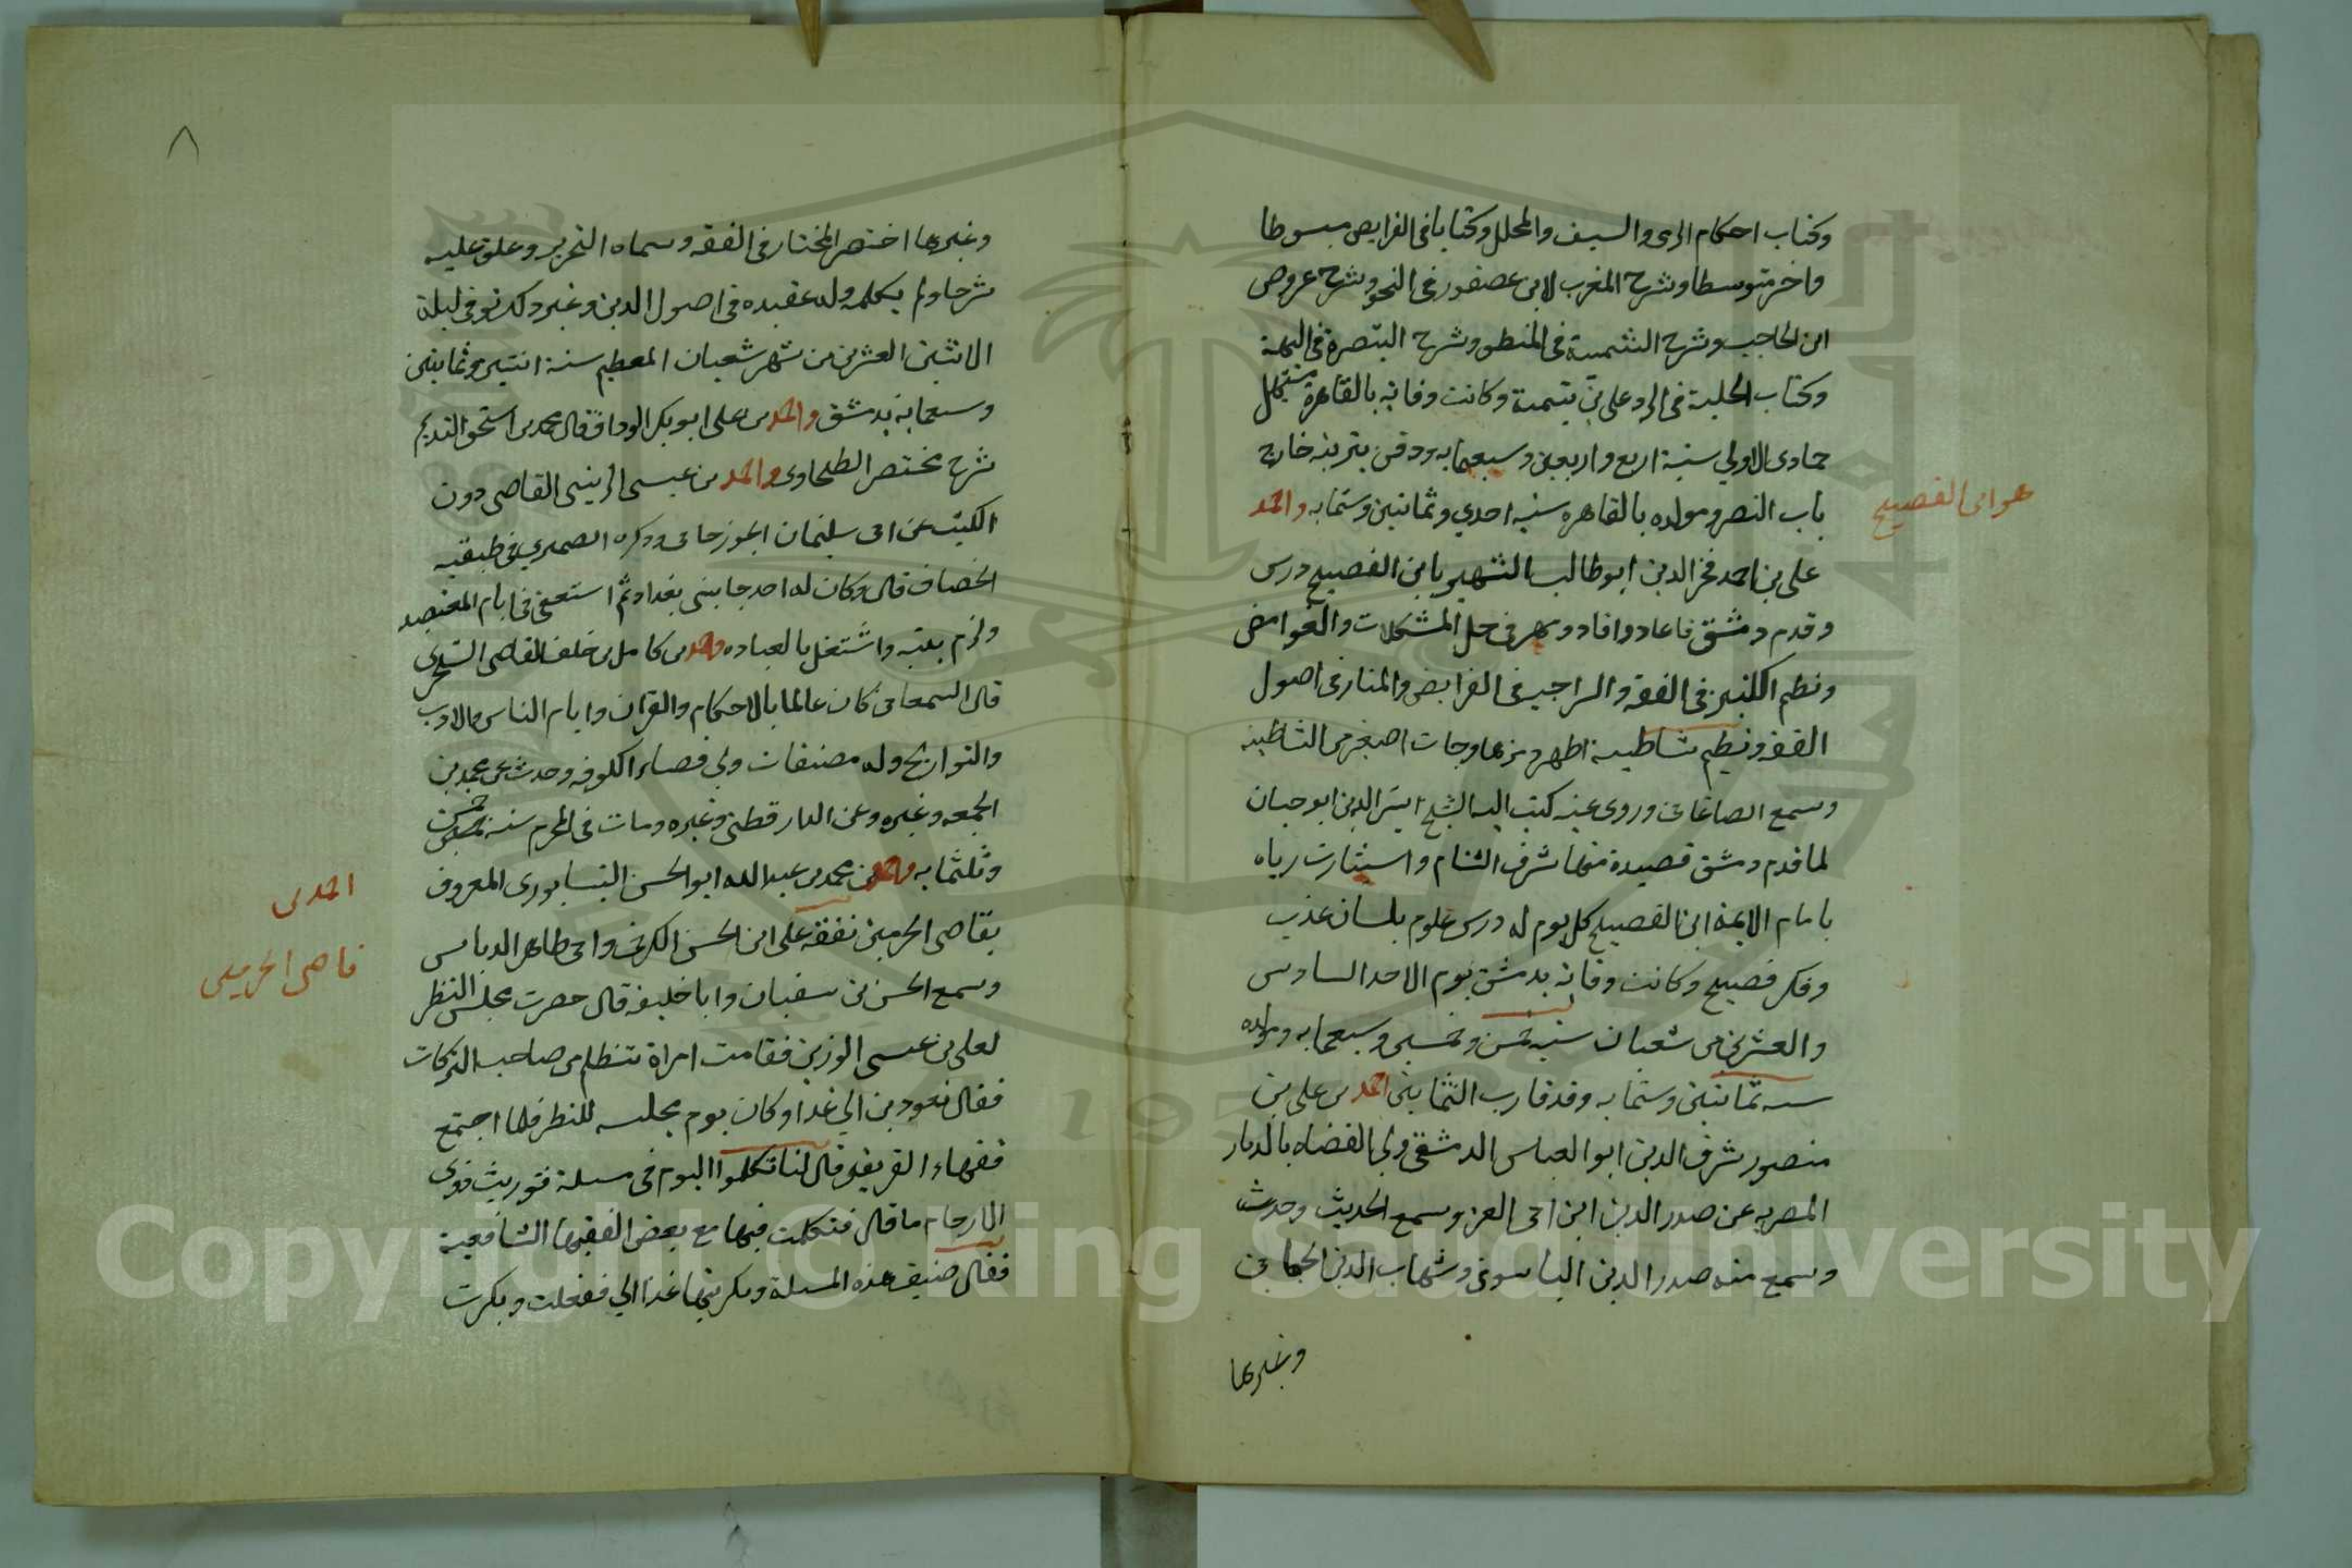 وكتاب احكام الرمى والسبق والمحلل وكتابا فى الفرايض مبسوطا
واخر متوسطا وشرح المقرب لابن عصفور فى النحو وشرح عروض
ابن الحاجب وشرح الشمسية فى المنطق وشرح التبصرة فى الهية
وكتاب الجلية فى الرد على بن تيمية وكانت وفاته بالقاهرة مستهل
جمادى الاولي سنة اربع واربعين وسبعمايه ودفن بتربته خارج
باب النصر ومولده بالقاهرة سنة احدي وثمانين وستمايه واحمد
هو ابن الفصيح
علي بن احمد فخر الدين ابو طالب الشهير بابن الفصيح درس
وقدم دمشق فاعاد وافاد ومهر فى حل المشكلات والغوامض
ونظم الكنز فى الفقه والسراجية فى الفرايض والمنار فى اصول
الفقه ونظم شاطبية اظهر رمزها وجات اصغر من الشاطبية
وسمع الصاغانى وروى عنه كتب اليه الشيخ اثير الدين ابو حيان
لما قدم دمشق قصيدة منها شرف الشام واستنارت رباه
بامام الايمة ابن الفصيح كل يوم له درس علوم بلسان عذب
وفكر فصيح وكانت وفاته بدمشق يوم الاحد السادس
والعشرين من شعبان سنة خمس وخمسين وسبعمايه ومولده
سنه ثمانين وستمايه وقد قارب الثمانين احمد بن على بن
منصور شرف الدين ابو العباس الدمشقى ولى القضاء بالديار
المصريه عن صدر الدين ابن ابى العز وسمع الحديث وحدث
وسمع منه صدر الدين الياسوفى وشهاب الدين
وغيرها
٨
وغيرها اختصر المختار فى الفقه وسماه التحرير وعلق عليه
شرحا ولم يكمله وله عقيده فى اصول الدين وغير ذلك توفى ليلة
الاثنين العشرين من شهر شعبان المعظم سنة اثنتين وثمانين
وسبعماية بدمشق واحمد بن على ابو بكر الوراق قال محمد بن اسحق النديم
شرح مختصر الطحاوى واحمد بن عيسى الزينبى القاضى دون
الكتب عن ابى سليمان الجوزجانى وذكره الصميري فى طبقة
الخصاف قال وكان له احد جانبى بغداد ثم استعفى فى ايام المعتضد
ولزم بيته واشتغل بالعباده واحمد بن كامل بن خلف القاضى الشجرى
قال السمعانى كان عالما بالاحكام والقران وايام الناس والادب
والتواريخ وله مصنفات ولى قضاء الكوفه وحدث عن محمد بن
الجهم وغيره وعن الدارقطنى وغيره ومات فى المحرم سنة خمسين
وثلثمايه واحمد بن محمد بن عبد الله ابو الحسن النيسابورى المعروف
احمد بن
قاضى الحرمين
بقاضى الحرمين تفقه على ابن الحسن الكرخى وابى طاهر الدباس
وسمع الحسن بن سفيان وابا خليفه قال حضرت مجلس النظر
لعلى بن عيسى الوزير فقامت امراة تتظلم من صاحب التركات
فقال تعودين الي غدا وكان يوم مجلسه للنظر فلما اجتمع
فقهاء الفريقين قال لنا تكلموا اليوم فى مسلة توريث ذوى
الارحام ما قال فتكلمت فيها مع بعض الفقها الشافعية
فقال صنف هذه المسلة وبكر بها غدا الي ففعلت وبكرت
Copyright © King Saud University